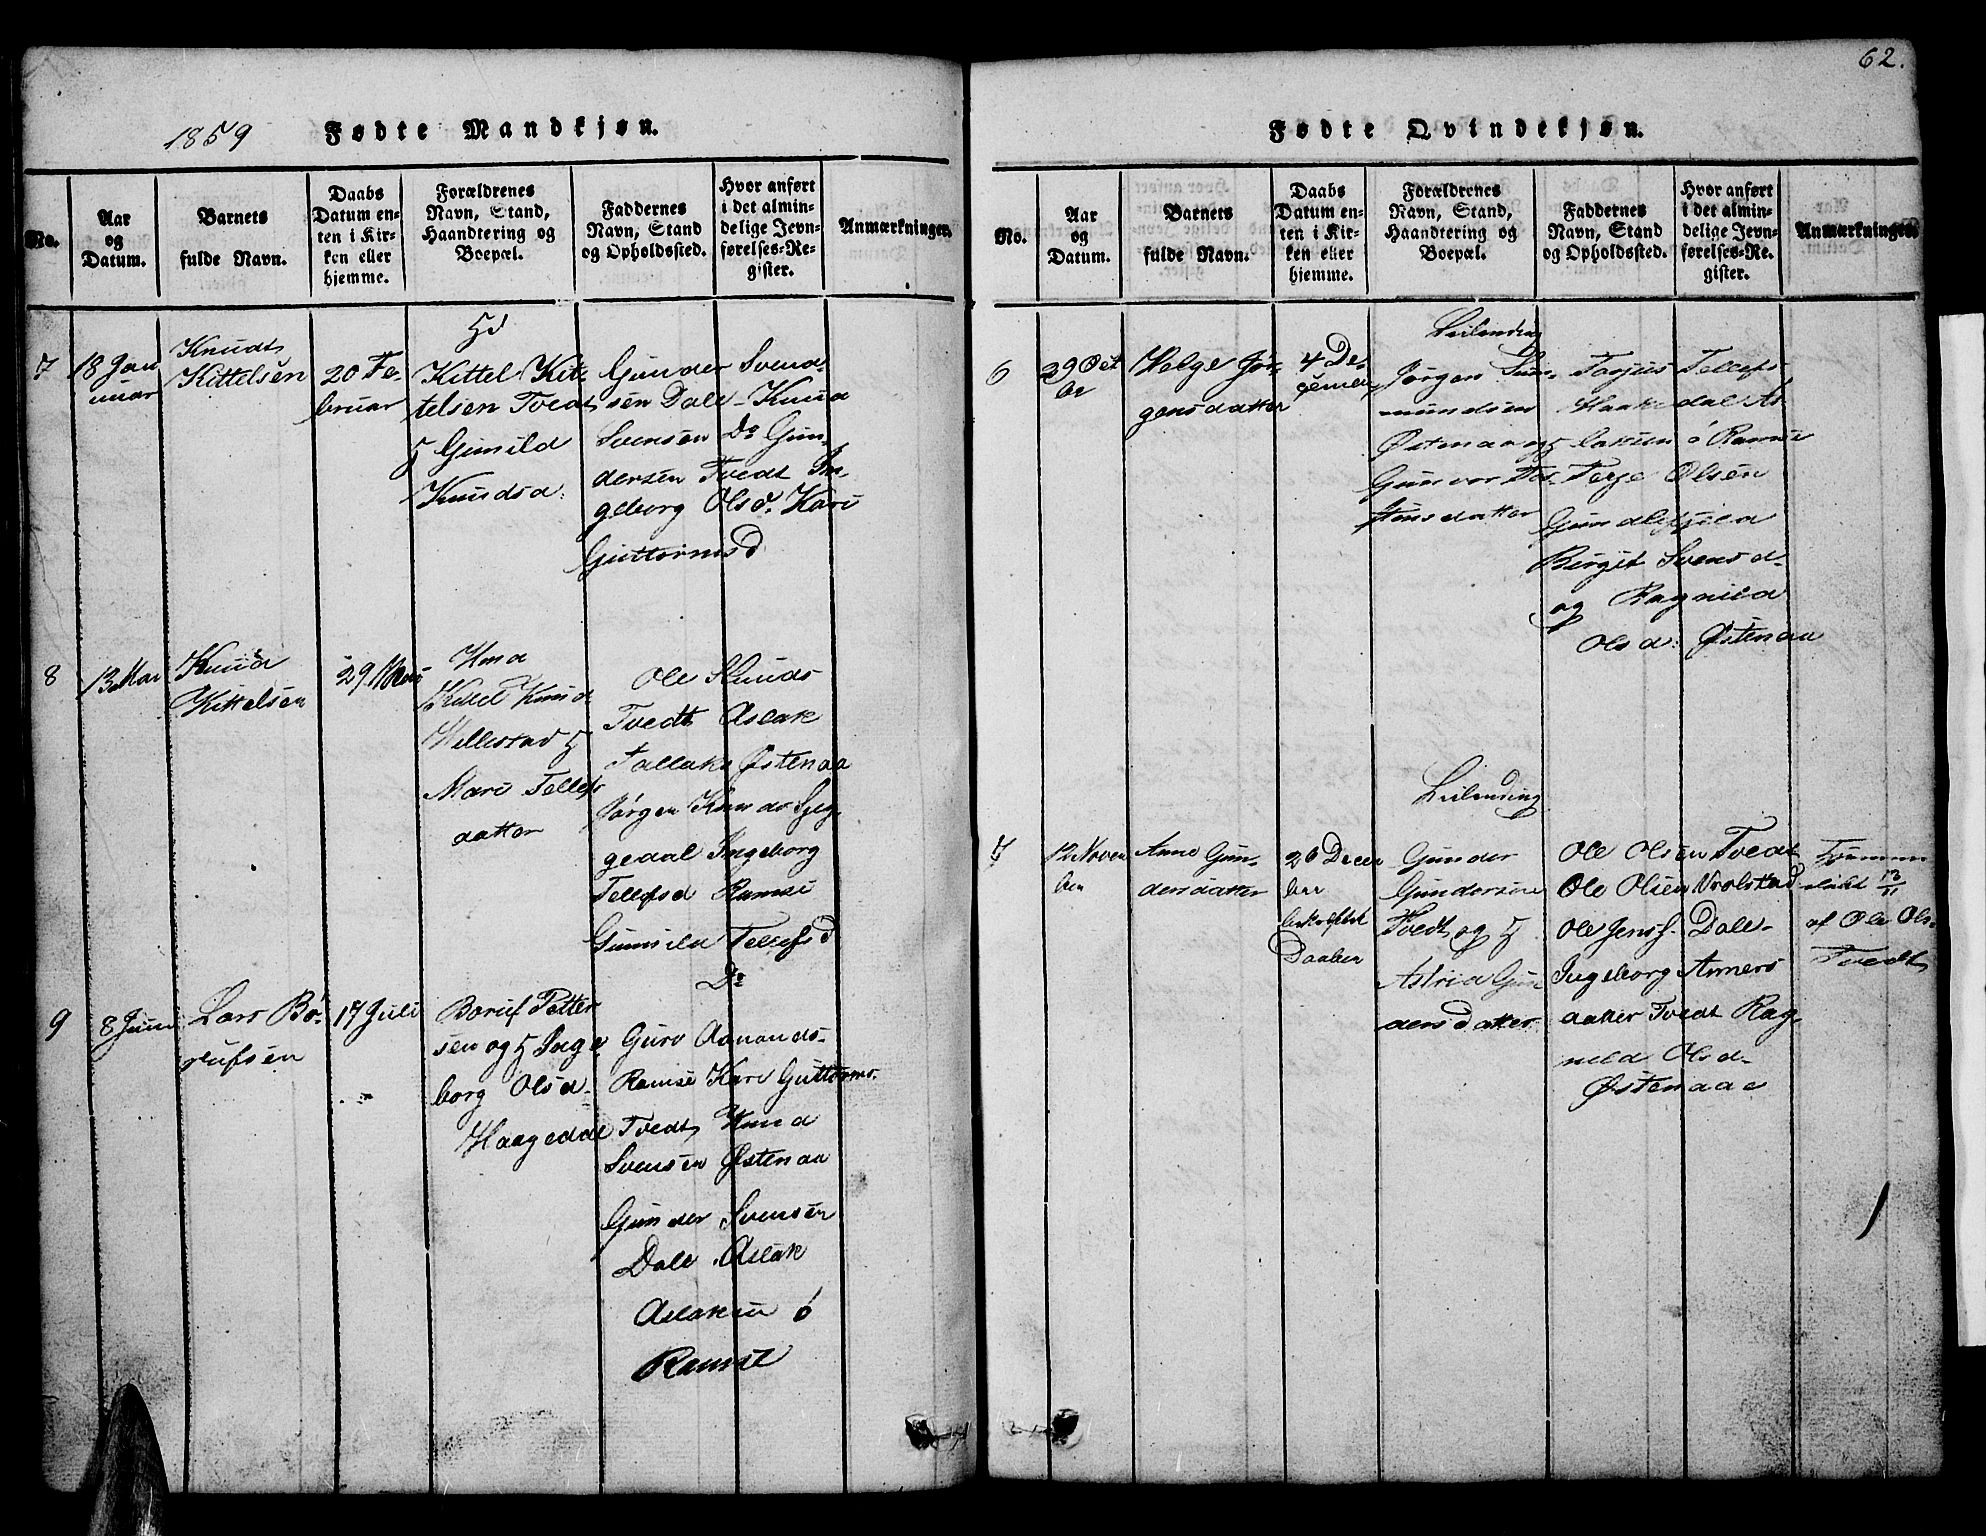 1859 Fødte Mandkjøn.
No.
Aar
og
Datum.
Barnets
fulde Navn.
Daabs
Datum en-
ten i Kir-
ken eller
hjemme.
Forældrenes
Navn, Stand,
Haandtering og
Boepæl.
Faddernes
Navn, Stand
og Opholdssted.
Hvor anført
i det almin-
delige Jevn-
førelses-Re-
gister.
Anmærkninger.
7
18 Jan
uar
Knudt
Kittelsen
20 Fe-
bruar
Kittel Kit-
telsen Tvedt
Gunild
Knudsd:
Gunder Svend-
sen Dale - Knud
Svensen Do Gun-
dersen Tvedt In-
geborg Olsd. Kari
Guttormsd
8
13 Mar
Knud
Kittelsen
29 Mai
Hmd
Kittel Knud
Hellestad
Mari Tellefs
datter
Ole Knuds
Tvedt Aslak
Tallaks Østenaa
Jørgen Knuds Syg-
gedal Ingeborg
Tellefsd Ramse
Gunnild Tellefsd
Do
9
8 Juni
Lars Bø-
rufsen
17 Juli
Boruf Petter
sen og Inge
borg Olsd.
Haagedal
Guro Aanonds-
Ramse Kari Guttorms.
Tvedt Knud
Svensen Østenaa
Gunder Svensen
Dale Aslak
Aslaksen ó
Ramse
62.
Fødte Qvindekjøn.
No.
Aar
og
Datum.
Barnets
fulde Navn.
Daabs
Datum en-
ten i Kir-
ken eller
hjemme.
Forældrenes
Navn, Stand,
Haandtering og
Boepæl.
Faddernes
Navn, Stand
og Opholdssted.
Hvor anført
i det almin-
delige Jevn-
førelses-Re-
gister.
Anmærkninger.
6
29 Oct
br
Helge Jør-
gensdatter
4 De-
cember
Leilending
Jørgen Gun-
mundsen
Østenaa og
Gunvor Tos-
stensdatter
Torjus Tellefs-
Haakedal As-
laksen ó Ramse
Terje Olsen
Birgit Svensd-
og Ragnild
Olsd: Østenaa
7
12 Novem
ber
Anne Gun-
dersdatter
26 Decem
ber
Daaben
Leilending
Gunder
Gundersen
Tvedt og
Astrid Gun
dersdatter
Ole Olsen Tvedt
Ole Olsen Vrolstad
Ole Jensf. Dale-
Ingeborg Anners
datter Tvedt Rag-
nild Olsd-
Østenaae
12/11
af Ole Ols-
Tvedt